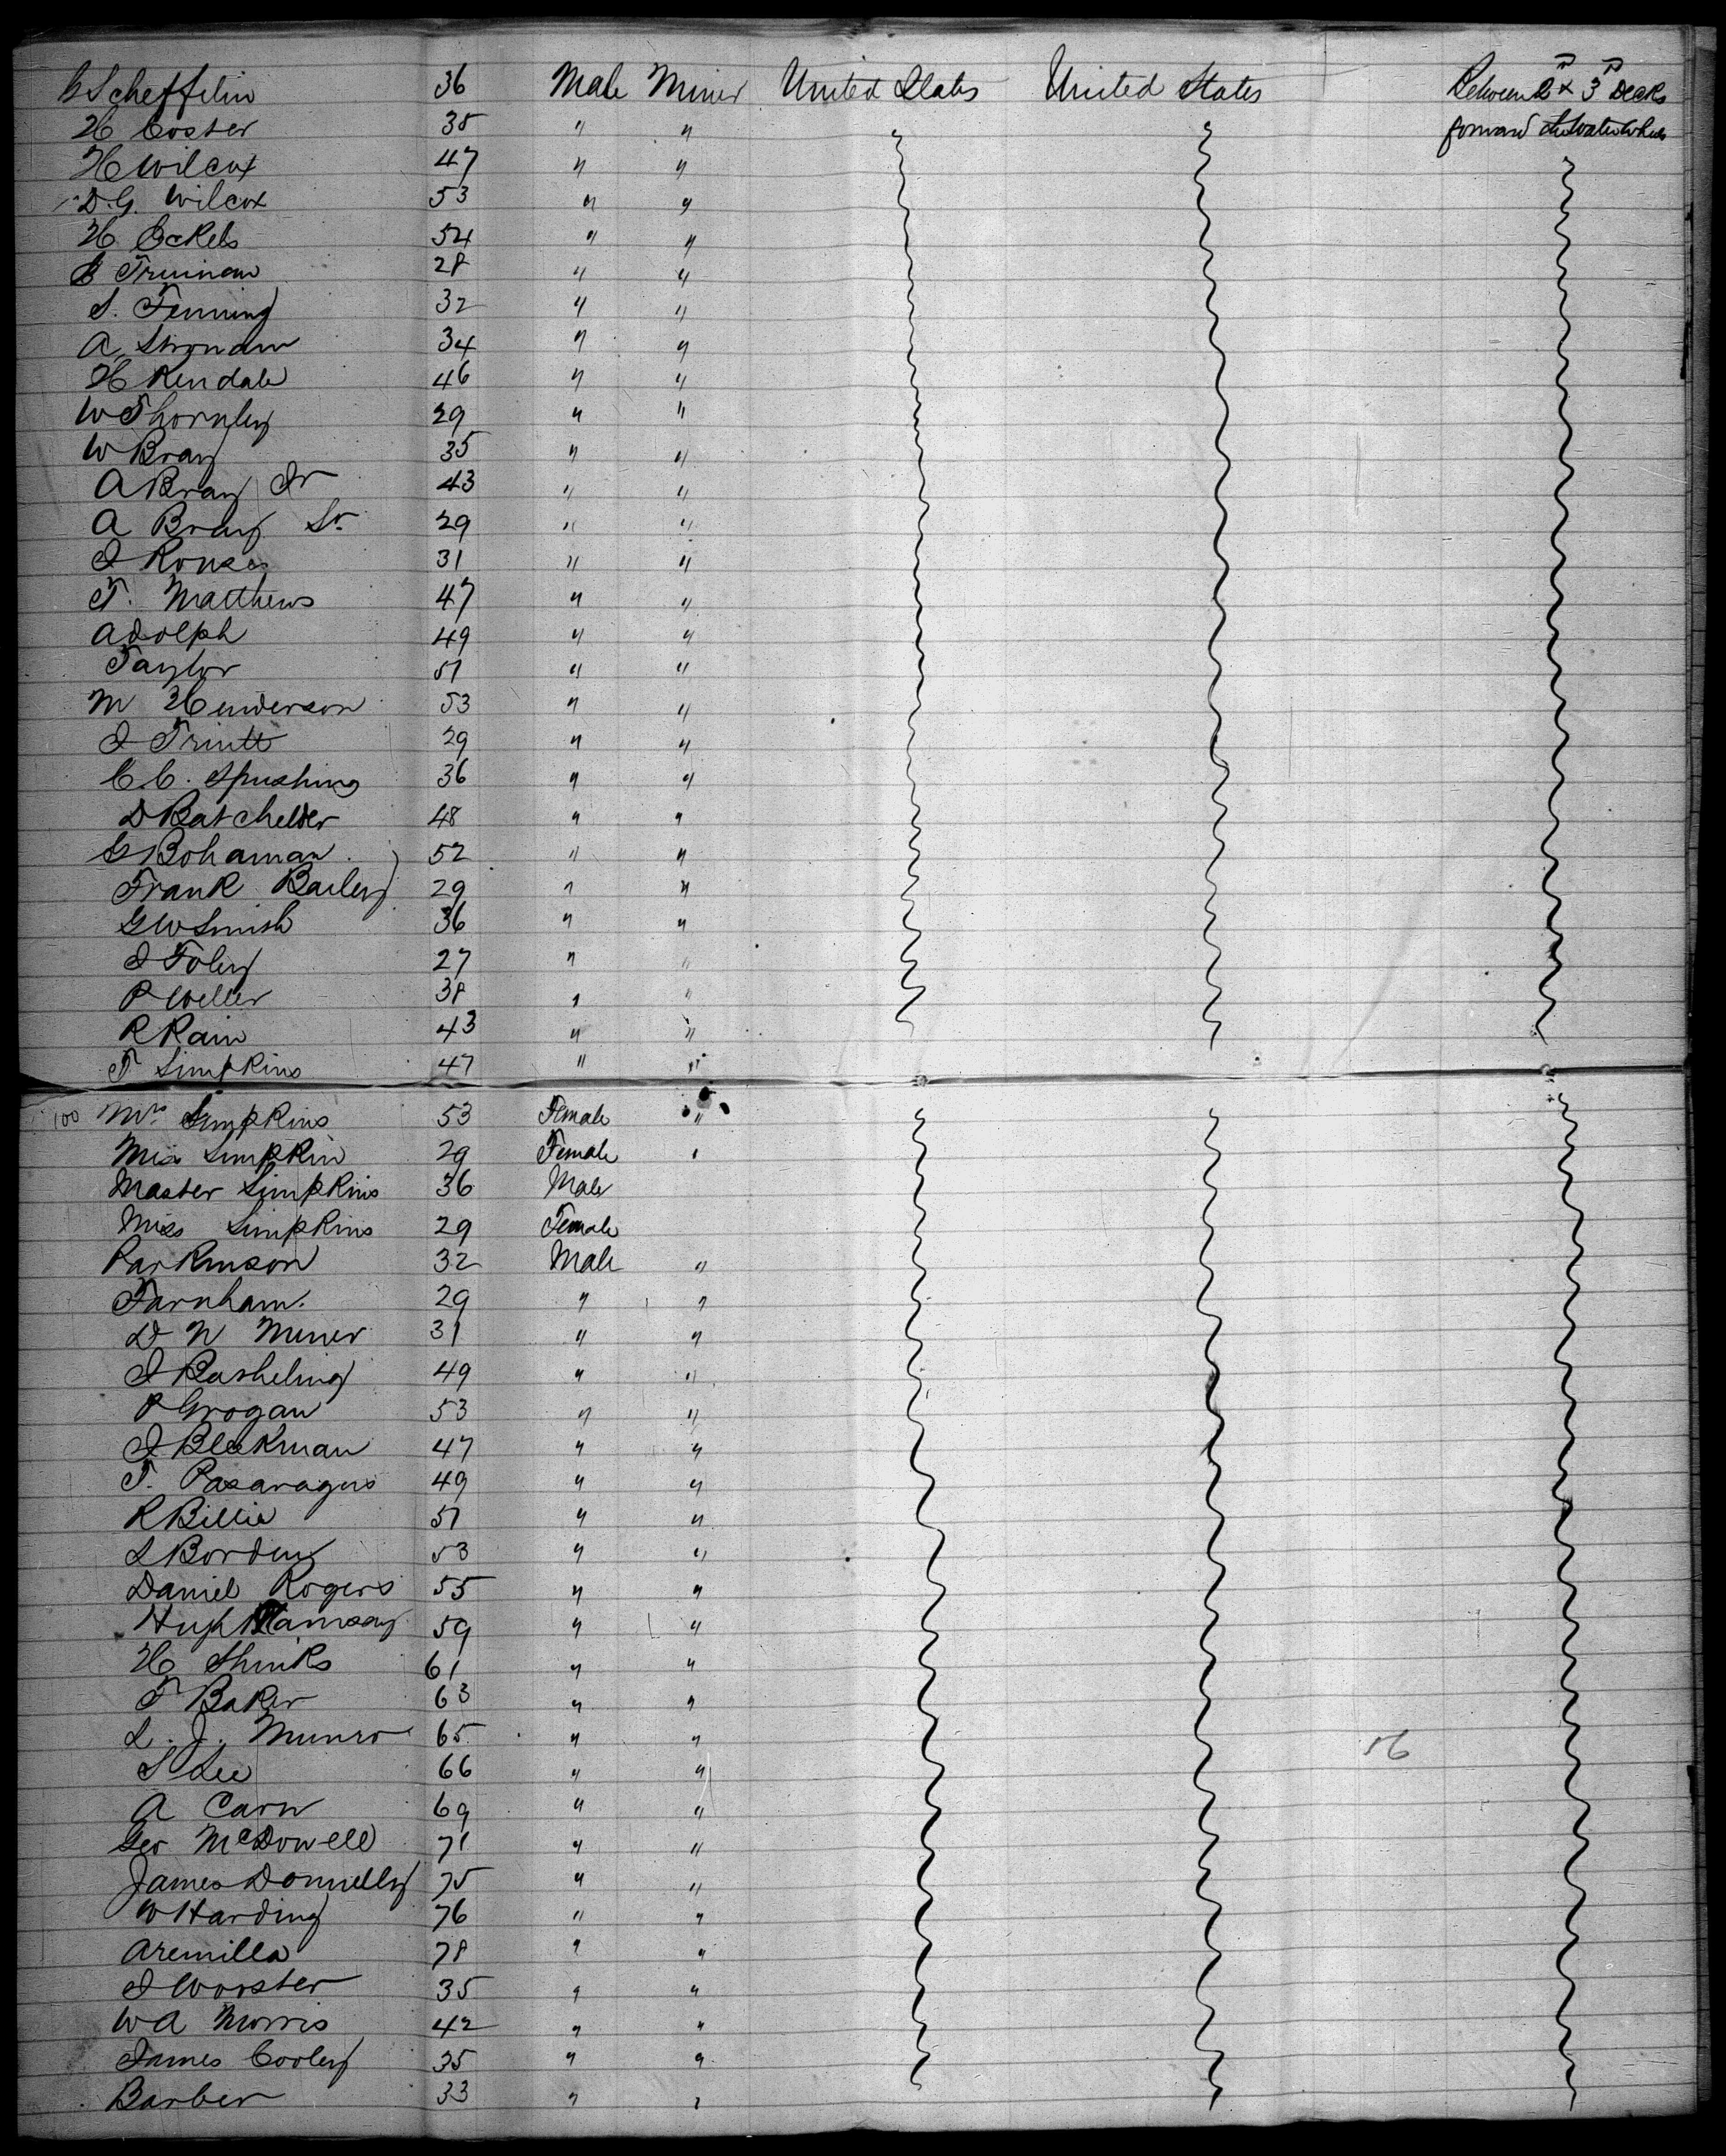 Scheffelin 36 Male Miner United States United States Between 2 & 3 Decks
H Coster 35 " " forward
H Wilcox 47 " "
D.G. Wilcox 53 " "
H Eckels 54 " "
Truman 28 " "
S. Fenning 32 " "
A 34 " "
H Kendale 46 " "
W Thornley 29 " "
W Bray 35 " "
A Bray Jr 43 " "
A Bray Sr 29 " "
J Rouse 31 " "
T. Matthews 47 " "
Adolph 49 " "
Taylor 51 " "
M Henderson 53 " "
J 29 " "
C.C. 36 " "
D Batchelder 48 " "
G Bohaman 52 " "
Frank Bailey 29 " "
G W Smith 36 " "
J Foley 27 " "
P Weller 38 " "
R Rain 43 " "
T Simpkins 47 " "
100 Mrs Simpkins 53 Female "
Miss Simpkin 29 Female "
Master Simpkins 36 Male
Miss Simpkins 29 Female
Parkinson 32 Male "
Farnham. 29 " "
D N Miner 31 " "
J Basheling 49 " "
P Grogan 53 " "
J Bleekman 47 " "
T. 49 " "
R Billie 51 " "
L Borden 53 " "
Daniel Rogers 55 " "
Hugh Ramsay 59 " "
H Shinks 61 " "
T Baker 63 " "
L. J. Munro 65 " "
S Lee 66 " "
A Carn 69 " "
Geo McDowell 71 " "
James Donnelly 75 " "
W Harding 76 " "
Aremilla 78 " "
J Wooster 35 " "
W A Morris 42 " "
James Cooley 35 " "
Barber 33 " "
56